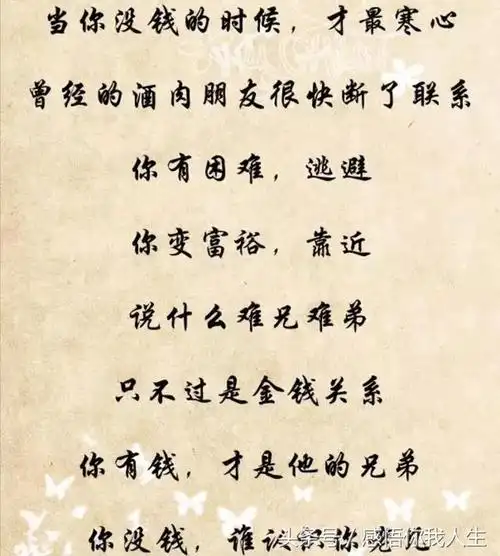 当你没钱的时候，才最寒心
曾经的酒肉朋友很快断了联系
你有困难，逃避
你变富裕，靠近
说什么难兄难弟
只不过是金钱关系
你有钱，才是他的兄弟
你没钱，谁认识你
感悟你我人生